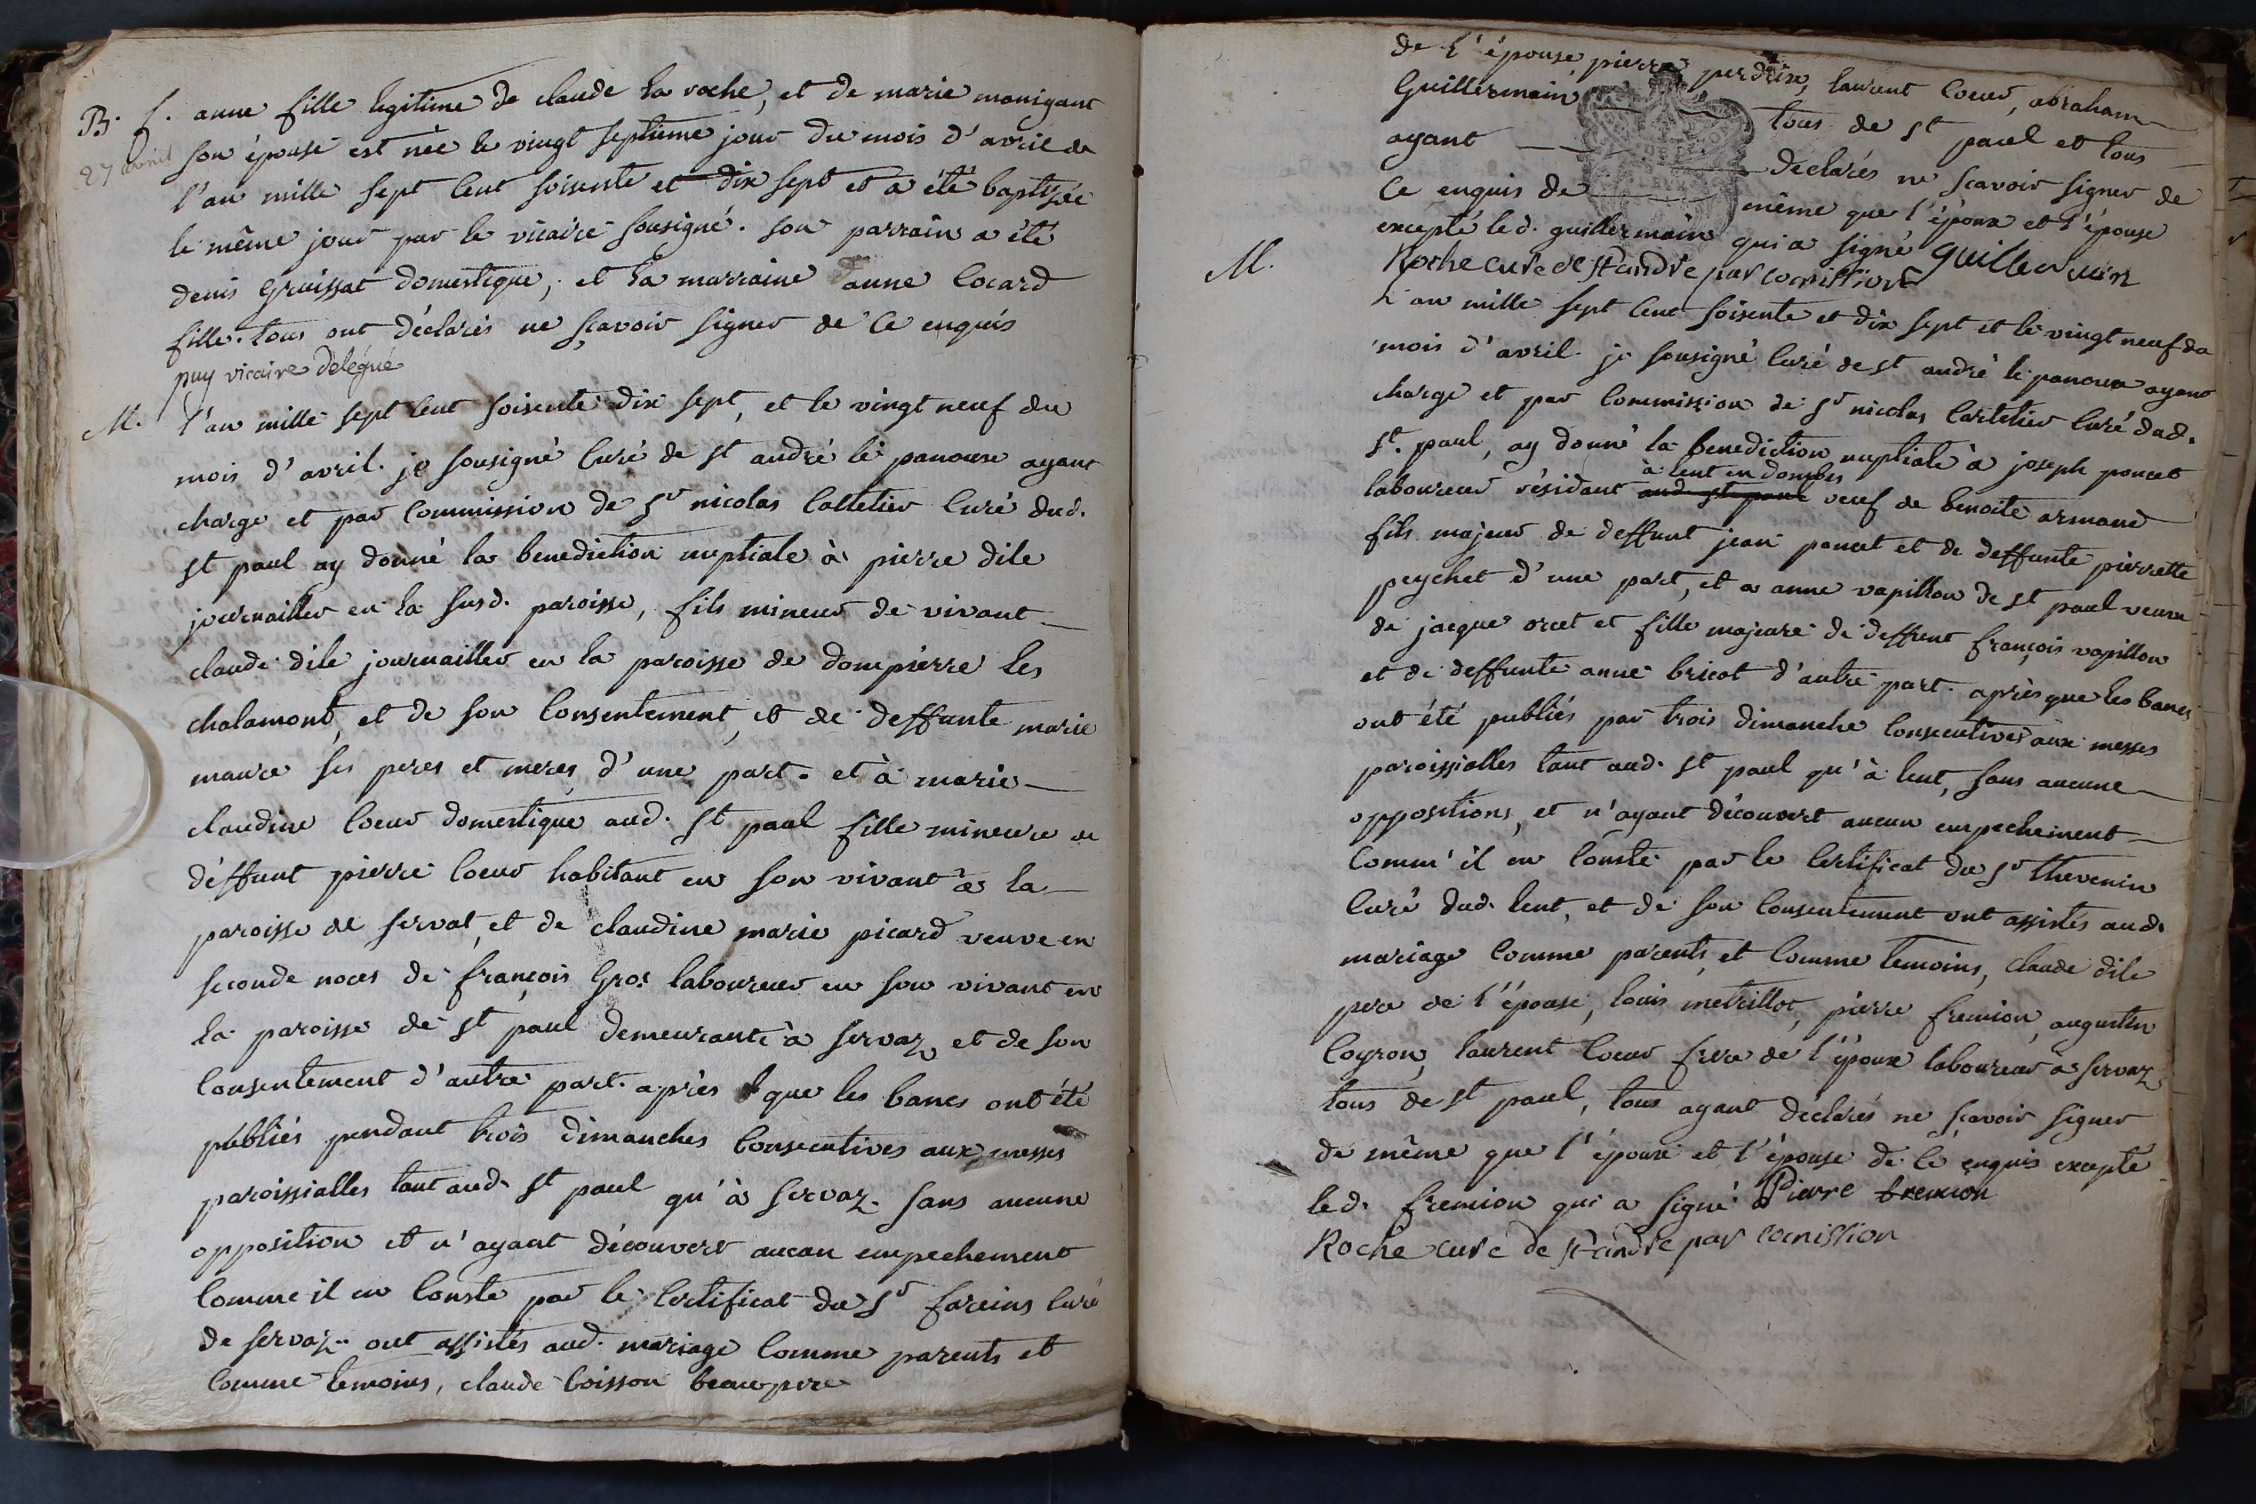 B. f. anne fille legitime de claude la roche, et de marie monigant
27 avril
son épouse est née le vingt septieme jour du mois d'avril de
l'an mille sept cent soisente et dix sept et a été baptisée
le même jour par le vicaire sousigné. son parrain a été
denis gruissat domestique, et la marraine anne Cocard
fille. tous ont déclarés ne sçavoir signer de ce enquis
puy vicaire délégué
M. l'an mille sept cent soisente dix sept, et le vingt neuf du
mois d'avril. je sousigné curé de st andré le panoux ayant
charge et par commission de sr nicolas Cattelier curé dud.
st paul ay donné la benediction nuptiale à pierre dile
journailler en la susd. paroisse, fils mineur de vivant
claude dile journailler en la paroisse de dompierre les
chalamont, et de son consentement, et de deffunte marie
maure ses peres et meres d'une part. et à marie
claudine Coeur domestique aud. st paul fille mineure de
déffunt pierre Coeur habitant en son vivant à la
paroisse de servat, et de claudine marie picard veuve en
seconde noces de françois Gros laboureur en son vivant en
la paroisse de st paul demeurante à servaz et de son
consentement d'autre part. après que les bancs ont été
publiés pendant trois dimanches consecutives aux messes
paroissialles tant aud. st paul qu'à servaz. sans aucune
opposition et n'ayant découvert aucun empechement
comme il en conste par le certificat du sr fareins curé
de servaz.. ont assistés aud. mariage comme parents et
comme temoins, claude boisson beaupere
de l'épouse pierre perdrix, laurent Coeur, abraham
Guillermain tous de st paul et tous
ayant declarés ne scavoir signer de
ce enquis de même que l'époux et l'épouse
excepté led. guillermain qui a signé Guillermin
Roche curé de st andré par comission
M. L'an mille sept cent soisente et dix sept et le vingt neuf du
mois d'avril. je sousigné curé de st andré le panoux ayant
charge et par commission de sr nicolas Cartelier curé dud.
st. paul, ay donné la benediction nuptiale à joseph poncet
à lent en dombes
laboureur résidant aud. st paul veuf de benoite armand
fils majeur de deffunt jean poncet et de deffunte pierrette
peychet d'une part, et a anne vapillon de st paul veuve
de jacque orcet et fille majeure de deffunt françois vapillon
et de deffunte anne bricot d'autre part. après que les bancs
ont été publiés par trois dimanche consecutives aux messes
paroissialles tant aud. st paul qu'à lent, sans aucune
oppositions, et n'ayant découvert aucun empechement
comm'il en conste par le certificat du sr thevenin
curé dud. lent, et de son consentement ont assistés aud.
mariage comme parents et comme temoins, claude dile
pere de l'épouse, louis metrillot, pierre fremion, augustin
Coyron, laurent Coeur frere de l'époux laboureur à servaz
tous de st paul, tous ayant déclarés ne sçavoir signer
de même que l'époux et l'épouse de ce enquis excepté
led. fremion qui a signé Pierre fremion
Roche curé de st andré par comission